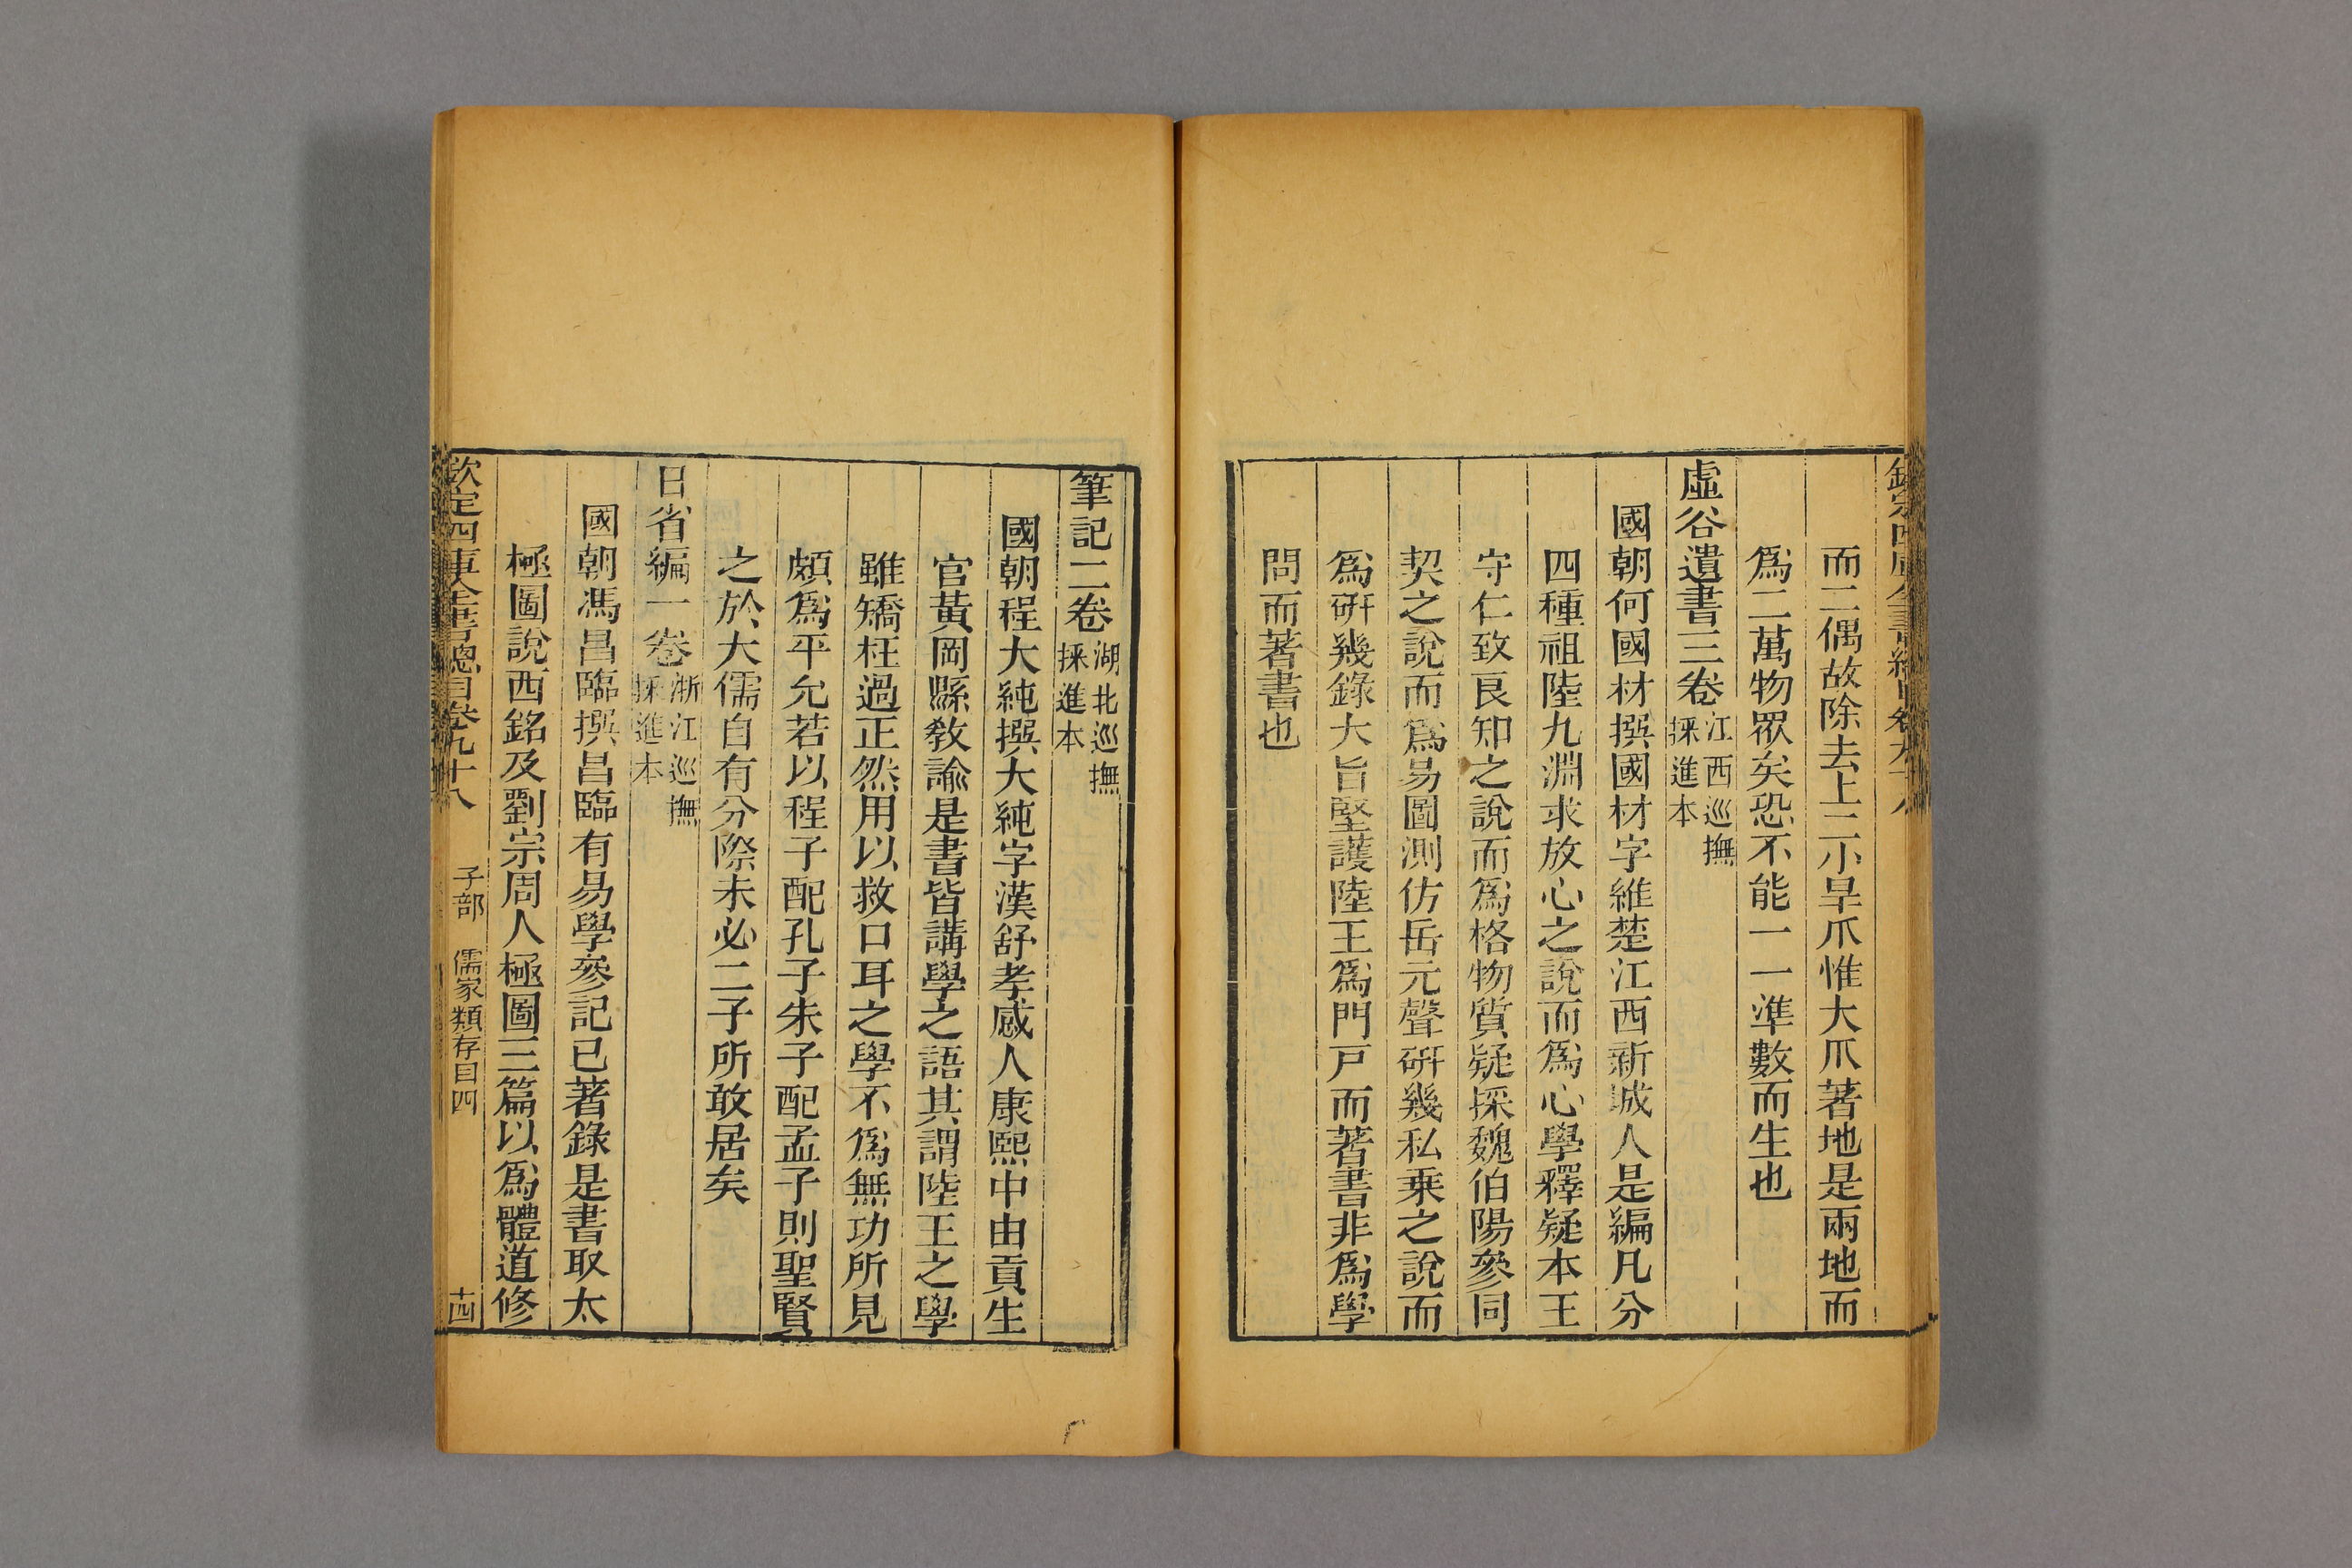 而二偶故除去上二小旱爪惟大爪著地是兩地而
爲二萬物眾矣恐不能一一準數而生也
虛谷遺書三卷江西巡撫採進本
國朝何國材撰國材字維楚江西新城人是編凡分
四種祖陸九淵求放心之說而爲心學釋疑本王
守仁致良知之說而爲格物質疑採魏伯陽參同
契之說而爲易圖測仿岳元聲硏幾私乗之說而
爲硏幾錄大旨堅護陸王爲門戸而著書非爲學
問而著書也
筆記二卷湖北巡撫採進本
國朝程大純撰大純字漢舒孝感人康熙中由貢生
官黃岡縣敎諭是書皆講學之語其謂陸王之學
雖矯枉過正然用以救口耳之學不爲無功所見
頗爲平允若以程子配孔子朱子配孟子則聖賢
之於大儒自有分際未必二子所敢居矣
日省編一卷浙江巡撫採進本
國朝馮昌臨撰昌臨有易學參記已著錄是書取太
極圖說西銘及劉宗周人極圖三篇以爲體道修
欽定四庫全書總目卷九十八 子部 儒家類存目四 十四